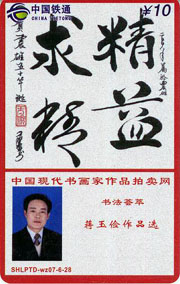 中国铁通
CHINA TIETONG
¥10
精益
求精
中国现代书画家作品拍卖网
书法荟萃
蒋玉俭作品选
SHLPTD-wz07-6-28